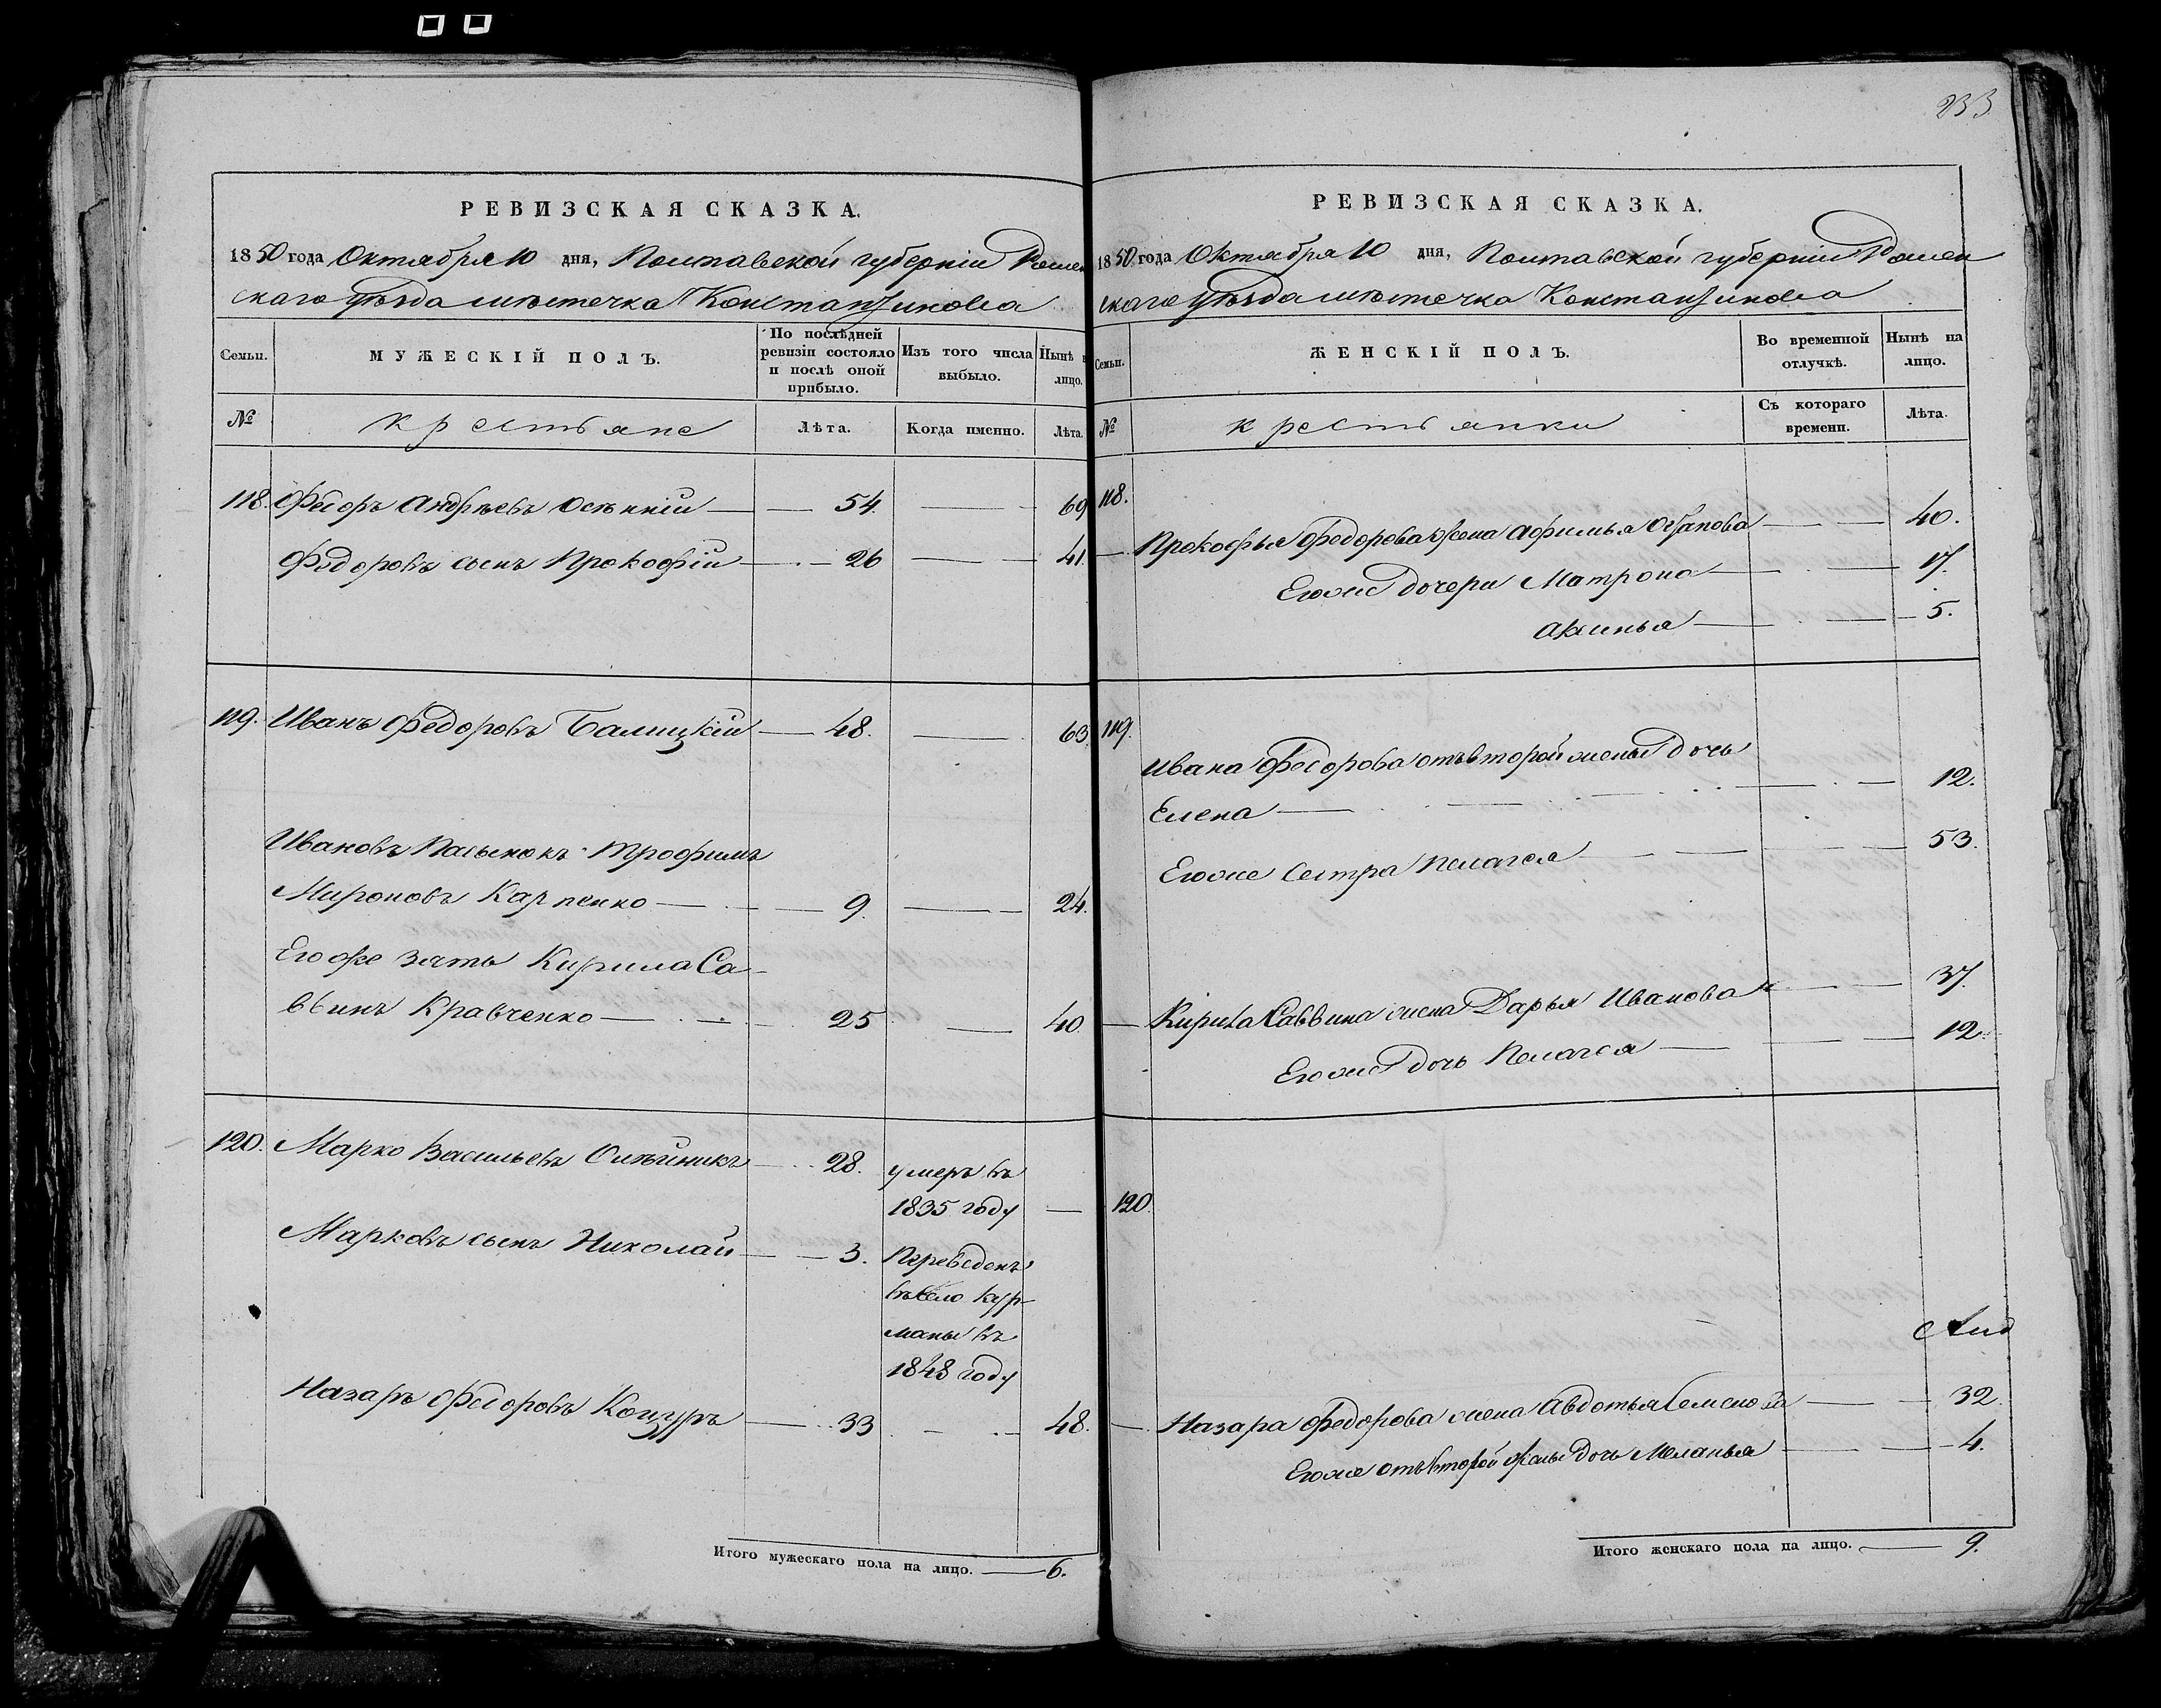 РЕВИЗСКАЯ СКАЗКА.
1850 года Октября 10 дня, Полтавской губерніи Ромен
скаго уѣзда мѣстечка Константинова
Семьи.
МУЖЕСКІЙ ПОЛЪ.
По послѣдней
ревизіи состояло
и послѣ оной
прибыло.
Изъ того числа
выбыло.
Нынѣ
лицо.
№
крестьяне
Лѣта.
Когда именно.
Лѣта.
118. Федоръ Андрѣевъ Осѣнній 54. 69
Федоровъ сынъ Прокофій 26 41.
119. Иванъ Федоровъ Балицкій 48. 63
Ивановъ Пасынокъ Трофимъ
Мироновъ Карпенко 9. 24.
Егоже зять Кирила Са-
ввинъ Кравченко 25 40.
120. Марко Васильевъ Олѣйникъ 28. умеръ въ
1835 году
Марковъ сынъ Николай 3. Переведенъ
въ село Кур-
маны въ
1848 году
Назаръ Федоровъ Коцуръ 33 48.
Итого мужескаго пола на лицо. 6.
233
РЕВИЗСКАЯ СКАЗКА.
1850 года Октября 10 дня, Полтавской губерніи Ромен
скаго уѣзда мѣстечка Константинова
Семьи.
ЖЕНСКІЙ ПОЛЪ.
Во временной
отлучкѣ.
Нынѣ на
лицо.
№
крестьянки
Съ котораго
времени.
Лѣта.
118.
Прокофья Федорова жена Афимья 40.
Егоже дочери Матрона 17.
Акинья 5.
119.
Ивана Федорова отъ второй жены дочь
Елена 12.
Егоже сестра Пелагея 53.
Кирила Саввина жена Дарья Иванова 37.
Егоже дочь Пелагея 12.
120.
Назара Федорова жена Авдотья Семенова 32
Егоже отъ второй жены дочь Меланья 4.
Итого женскаго пола на лицо. 9.